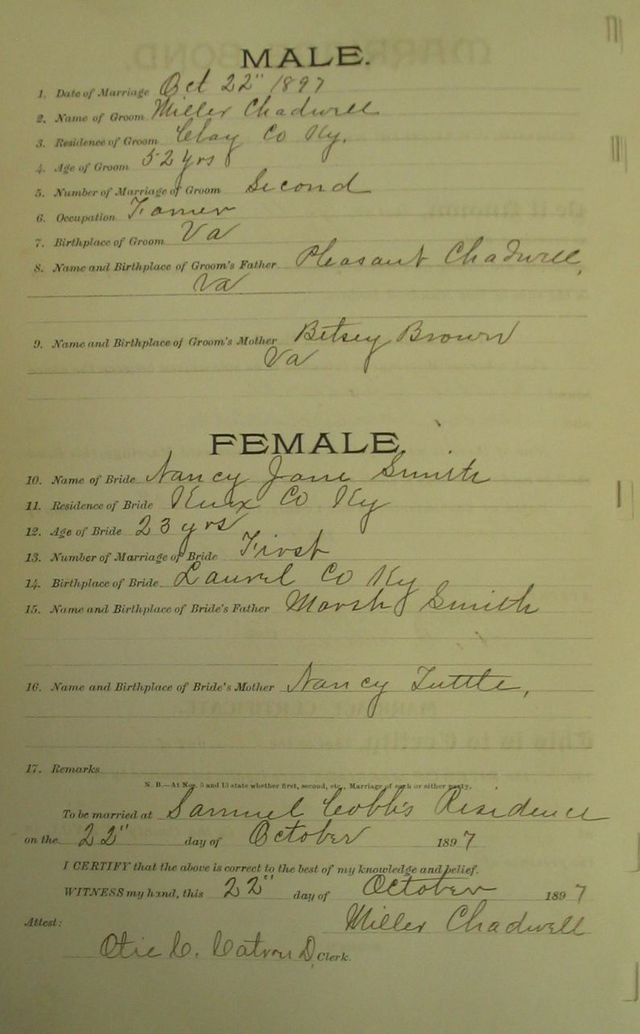 MALE.
1. Date of Marriage Oct 22" 1897
2. Name of Groom Miller Chadwell
3. Residence of Groom Clay Co Ky.
4. Age of Groom 52 yrs
5. Number of Marriage of Groom Second
6. Occupation Farmer
7. Birthplace of Groom Va
8. Name and Birthplace of Groom's Father Pleasant Chadwell,
Va
9. Name and Birthplace of Groom's Mother Betsey Brown
Va
FEMALE.
10. Name of Bride Nancy Jane Smith
11. Residence of Bride Knox Co Ky
12. Age of Bride 23 yrs
13. Number of Marriage of Bride First
14. Birthplace of Bride Laurel Co Ky
15. Name and Birthplace of Bride's Father Marsh Smith
16. Name and Birthplace of Bride's Mother Nancy Tuttle,
17. Remarks
N. B.—At Nos. 5 and 13 state whether first, second, etc., Marriage of each or either party.
To be married at Samuel Cobb's Residence
on the 22" day of October 1897
I CERTIFY that the above is correct to the best of my knowledge and belief.
WITNESS my hand, this 22" day of October 1897
Miller Chadwell
Attest:
Otie C. Catron D. Clerk.